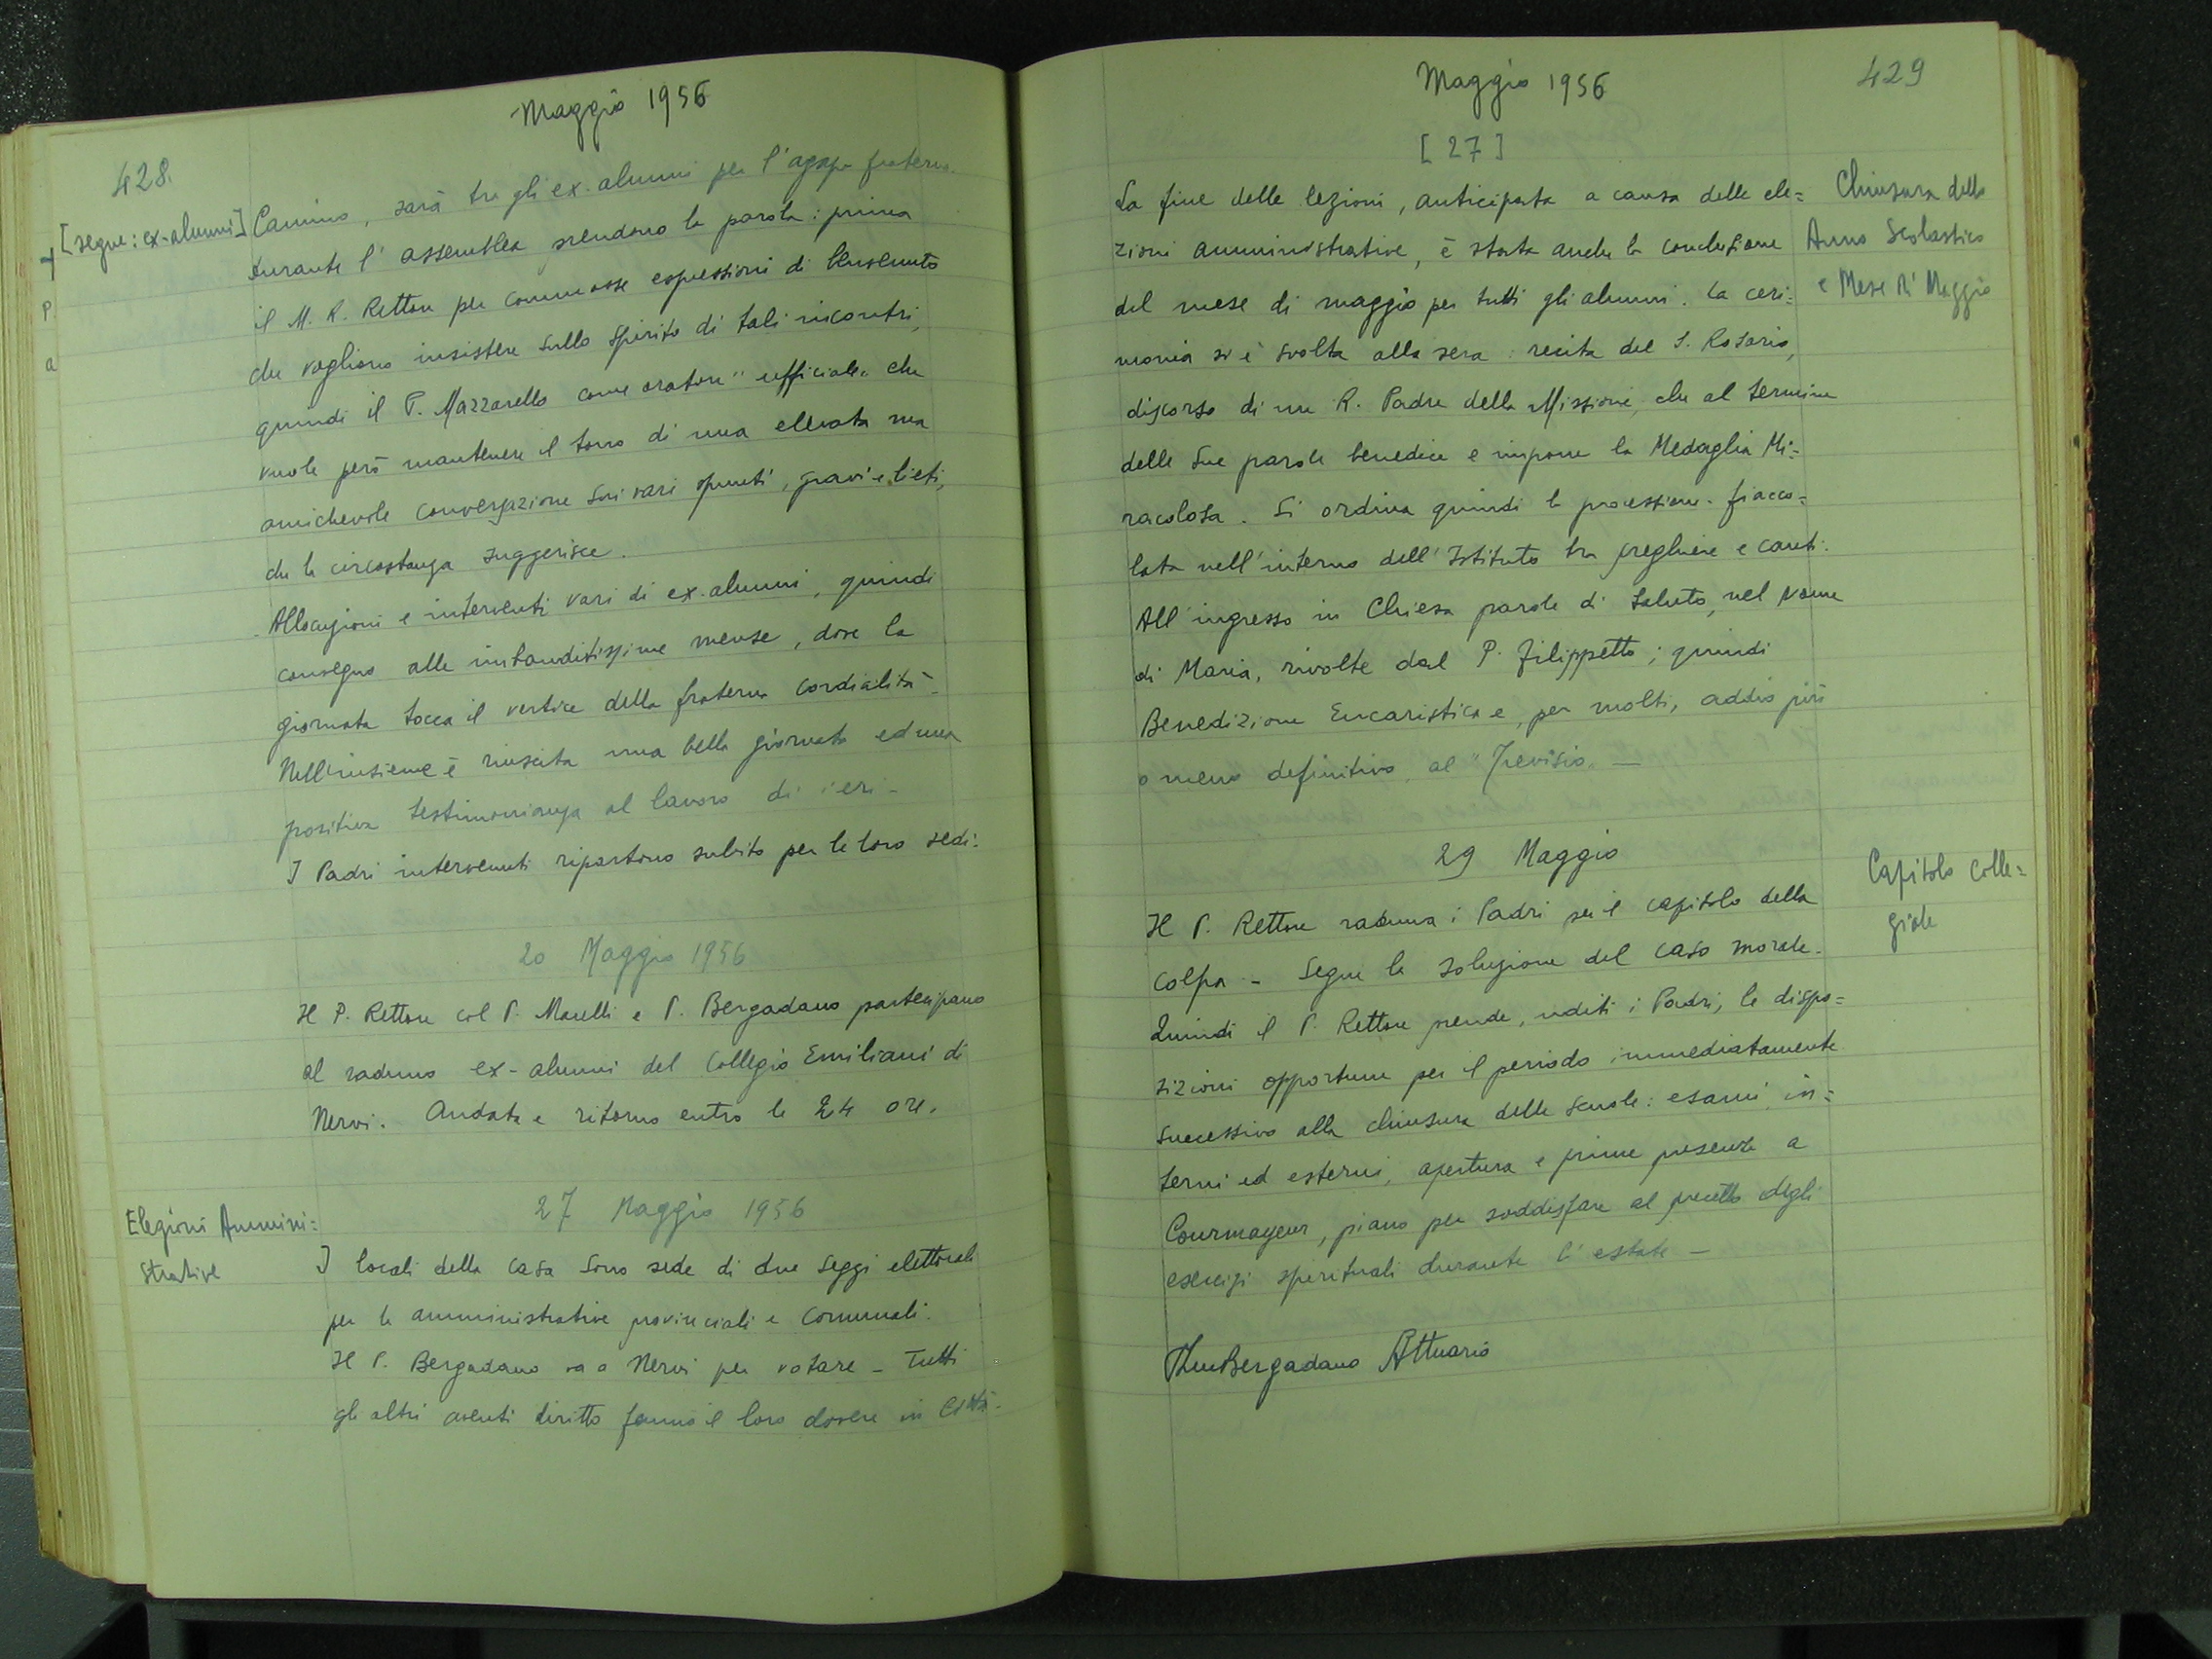 Maggio 1956
428.
[segue: ex-alunni]
Camino, sarà tra gli ex-alunni per l'agape fraterna.
Durante l'assemblea prendono la parola: prima
il M. R. Rettore per commosse espressioni di benvenuto
che vogliono insistere sullo spirito di tali incontri,
quindi il P. Mazzarello come oratore "ufficiale" che
vuole però mantenere il tono di una elevata ma
amichevole conversazione sui vari spunti, gravi e lieti,
che la circostanza suggerisce.
Allocuzioni e interventi vari di ex-alunni, quindi
convegno alle imbanditissime mense, dove la
giornata tocca il vertice della fraterna cordialità-
Nell'insieme è riuscita una bella giornata ed una
positiva testimonianza al lavoro di ieri-
I Padri intervenuti ripartono subito per le loro sedi.
20 Maggio 1956
Il P. Rettore col P. Marelli e P. Bergadano partecipano
al raduno ex-alunni del Collegio Emiliani di
Nervi. Andata e ritorno entro le 24 ore.
27 Maggio 1956
Elezioni Ammini=
strative
I locali della casa sono sede di due seggi elettorali
per le amministrative provinciali e comunali.
Il P. Bergadano va a Nervi per votare - Tutti
gli altri aventi diritto fanno il loro dovere in città-
Maggio 1956
429
[27]
Chiusura dello
Anno Scolastico
e Mese di Maggio
La fine delle lezioni, anticipata a causa delle ele=
zioni amministrative, è stata anche la conclusione
del mese di maggio per tutti gli alunni. La ceri=
monia si è svolta alla sera: recita del S. Rosario,
discorso di un R. Padre della Missione, che al termine
delle sue parole benedice e impone la Medaglia Mi=
racolosa. Si ordina quindi la processione-fiacco=
lata nell'interno dell'Istituto tra preghiere e canti.
All'ingresso in Chiesa parole di saluto, nel nome
di Maria, rivolte dal P. Filippetto; quindi
Benedizione Eucaristica e, per molti, addio più
o meno definitivo, al "Trevisio" -
29 Maggio
Capitolo colle=
giale
Il P. Rettore raduna i Padri per il capitolo della
colpa - Segue la soluzione del caso morale-
Quindi il P. Rettore prende, uditi i Padri, le dispo=
sizioni opportune per il periodo immediatamente
successivo alla chiusura delle scuole: esami in=
terni ed esterni, apertura e prime presenze a
Courmayeur, piano per soddisfare al precetto degli
esercizi spirituali durante l'estate -
Bergadano Attuario